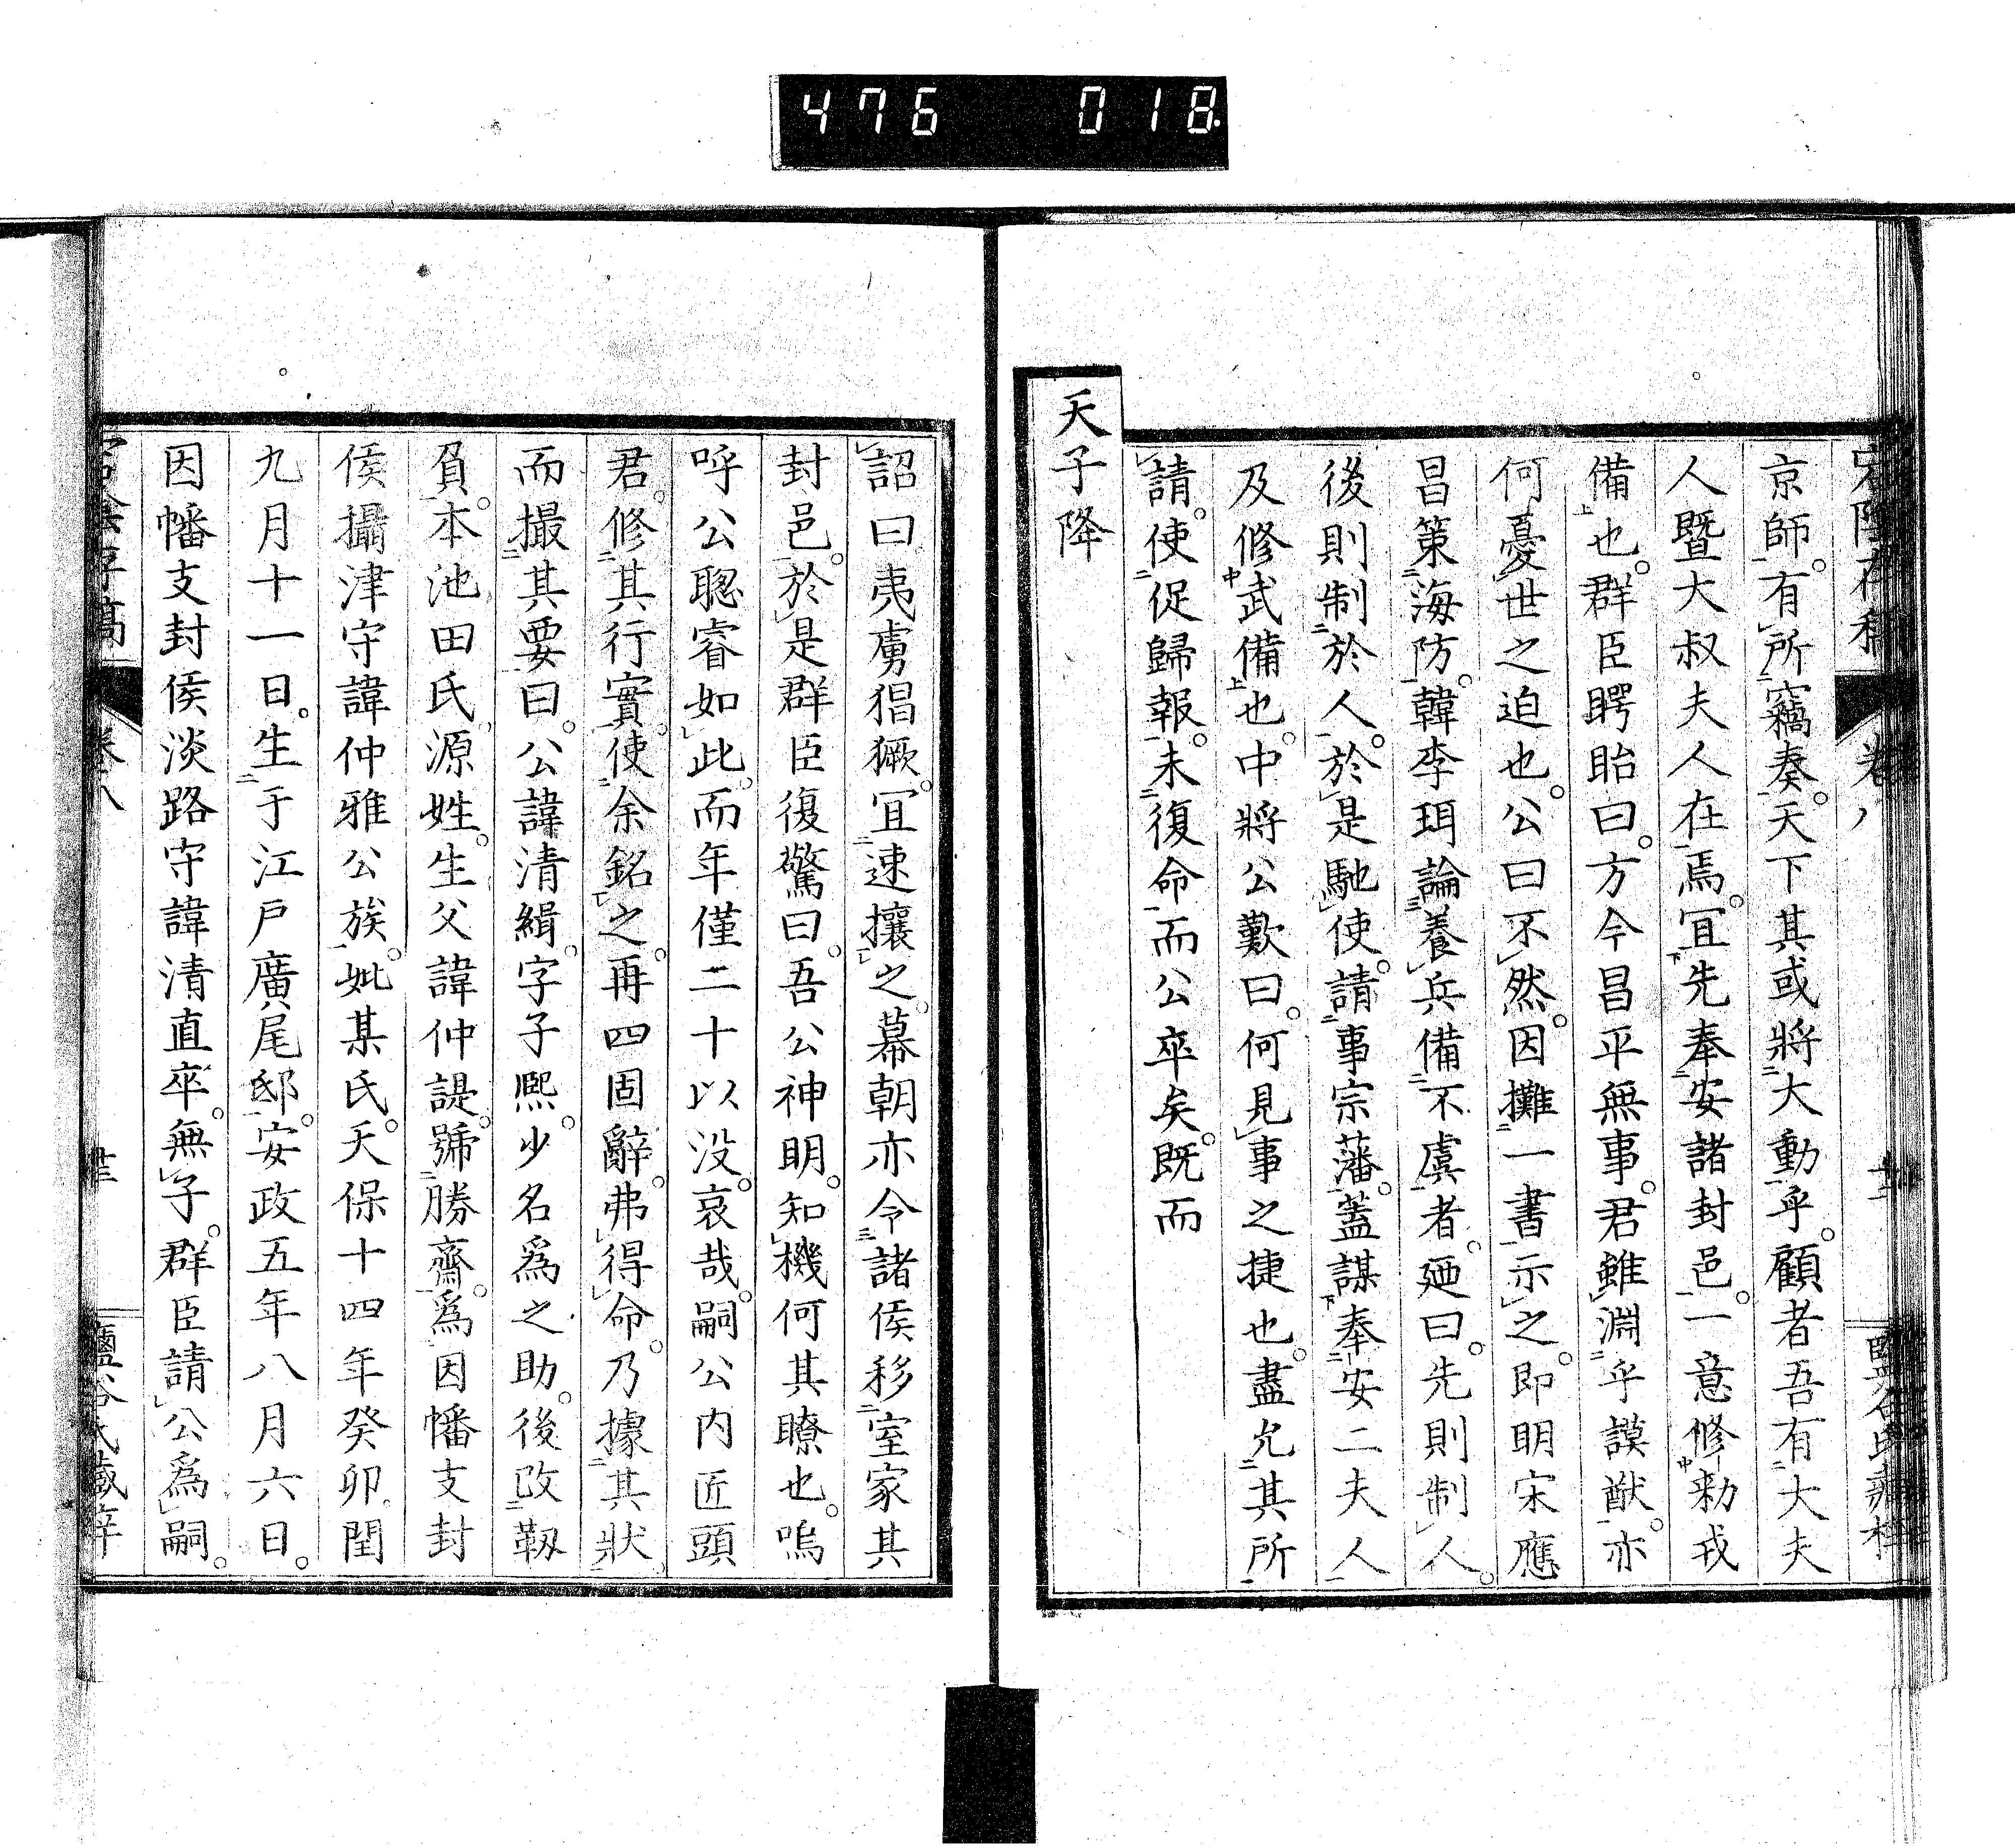 476 018
宕陰存稿 卷八
京師。有所竊奏。天下其或將大動乎。顧者吾有大夫
人曁大叔夫人在焉。宜先奉安諸封邑。一意修勑戎
備也。群臣瞪眙曰。方今昌平無事。君雖淵乎謨猷。亦
何憂世之迫也。公曰不然。因攤一書示之。即明宋應
昌策海防。韓李珥論養兵備不虞者。廼曰。先則制人。
後則制於人。於是馳使。請事宗藩。蓋謀奉安二夫人
及修武備也。中將公歎曰。何見事之捷也。盡允其所
請。使促歸報。未復命而公卒矣。既而
天子降
詔曰夷虜猖獗。宜速攘之。幕朝亦令諸侯移室家其
封邑。於是群臣復驚曰。吾公神明。知機何其瞭也。嗚
呼公聰睿如此。而年僅二十以没。哀哉。嗣公内匠頭
君。修其行實。使余銘之。再四固辭。弗得命。乃據其狀
而撮其要曰。公諱清緝。字子熙。少名爲之助。後改靱
負。本池田氏源姓。生父諱仲諟。號勝齋。爲因幡支封
侯攝津守諱仲雅公族。妣某氏。天保十四年癸卯閏
九月十一日。生于江戸廣尾邸。安政五年八月六日。
因幡支封侯淡路守諱清直卒。無子。群臣請公爲嗣。
卷八